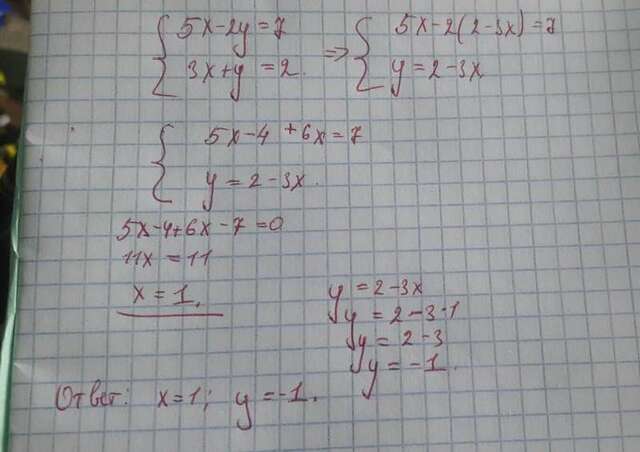 5x-2y=7 => 5x-2(2-3x)=7
3x+y=2. y=2-3x
5x-4+6x=7
y=2-3x.
5x-4+6x-7=0
11x=11
x=1.
y=2-3x
y=2-3·1
y=2-3
y=-1.
Ответ: x=1; y=-1.